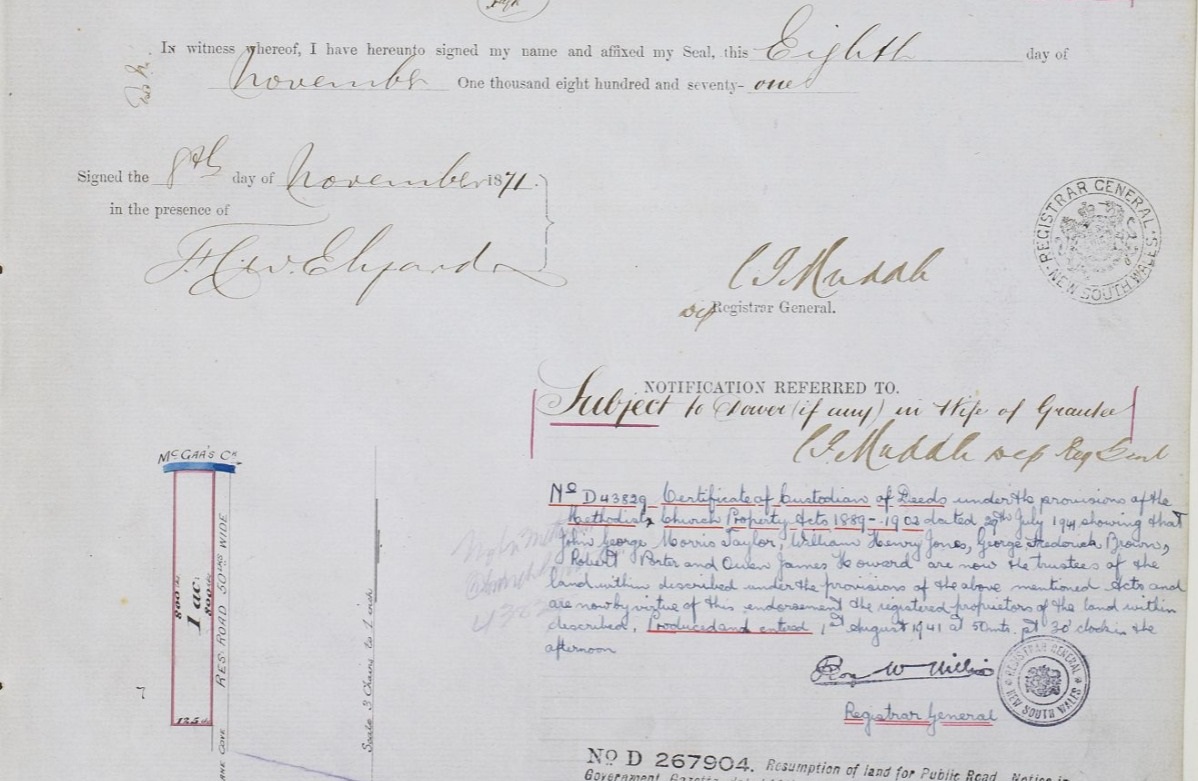 In witness whereof, I have hereunto signed my name and affixed my Seal, this Eighth day of
November One thousand eight hundred and seventy- one
Signed the 8th day of November 1871.
in the presence of
REGISTRAR GENERAL'S
NEW SOUTH WALES
C J Muddle
dep Registrar General.
NOTIFICATION REFERRED TO.
Subject to Dower (if any) in Wife of Grantee
C J Muddle dep Reg Genl
No D43829 Certificate of Custodian of Deeds under the provisions of the
Methodist Church Property Acts 1889-1902 dated 29th July 1941 showing that
John George Morris Taylor, William Henry Jones, George Frederick Brown,
Robert Porter and Owen James Howard are now the trustees of the
land within described under the provisions of the above mentioned Acts and
are now by virtue of this endorsement the registered proprietors of the land within
described. Produced and entered 1st August 1941 at 50 mts. pt 3 o'clock in the
afternoon
Registrar General
REGISTRAR GENERAL
NEW SOUTH WALES
McGAR'S CK
800
1 ac.
800
125
RES. ROAD 50 LKS WIDE
LANE COVE
Scale 3 Chains to 1 inch
7
No D 267904. Resumption of land for Public Road. Notice in
Government Gazette